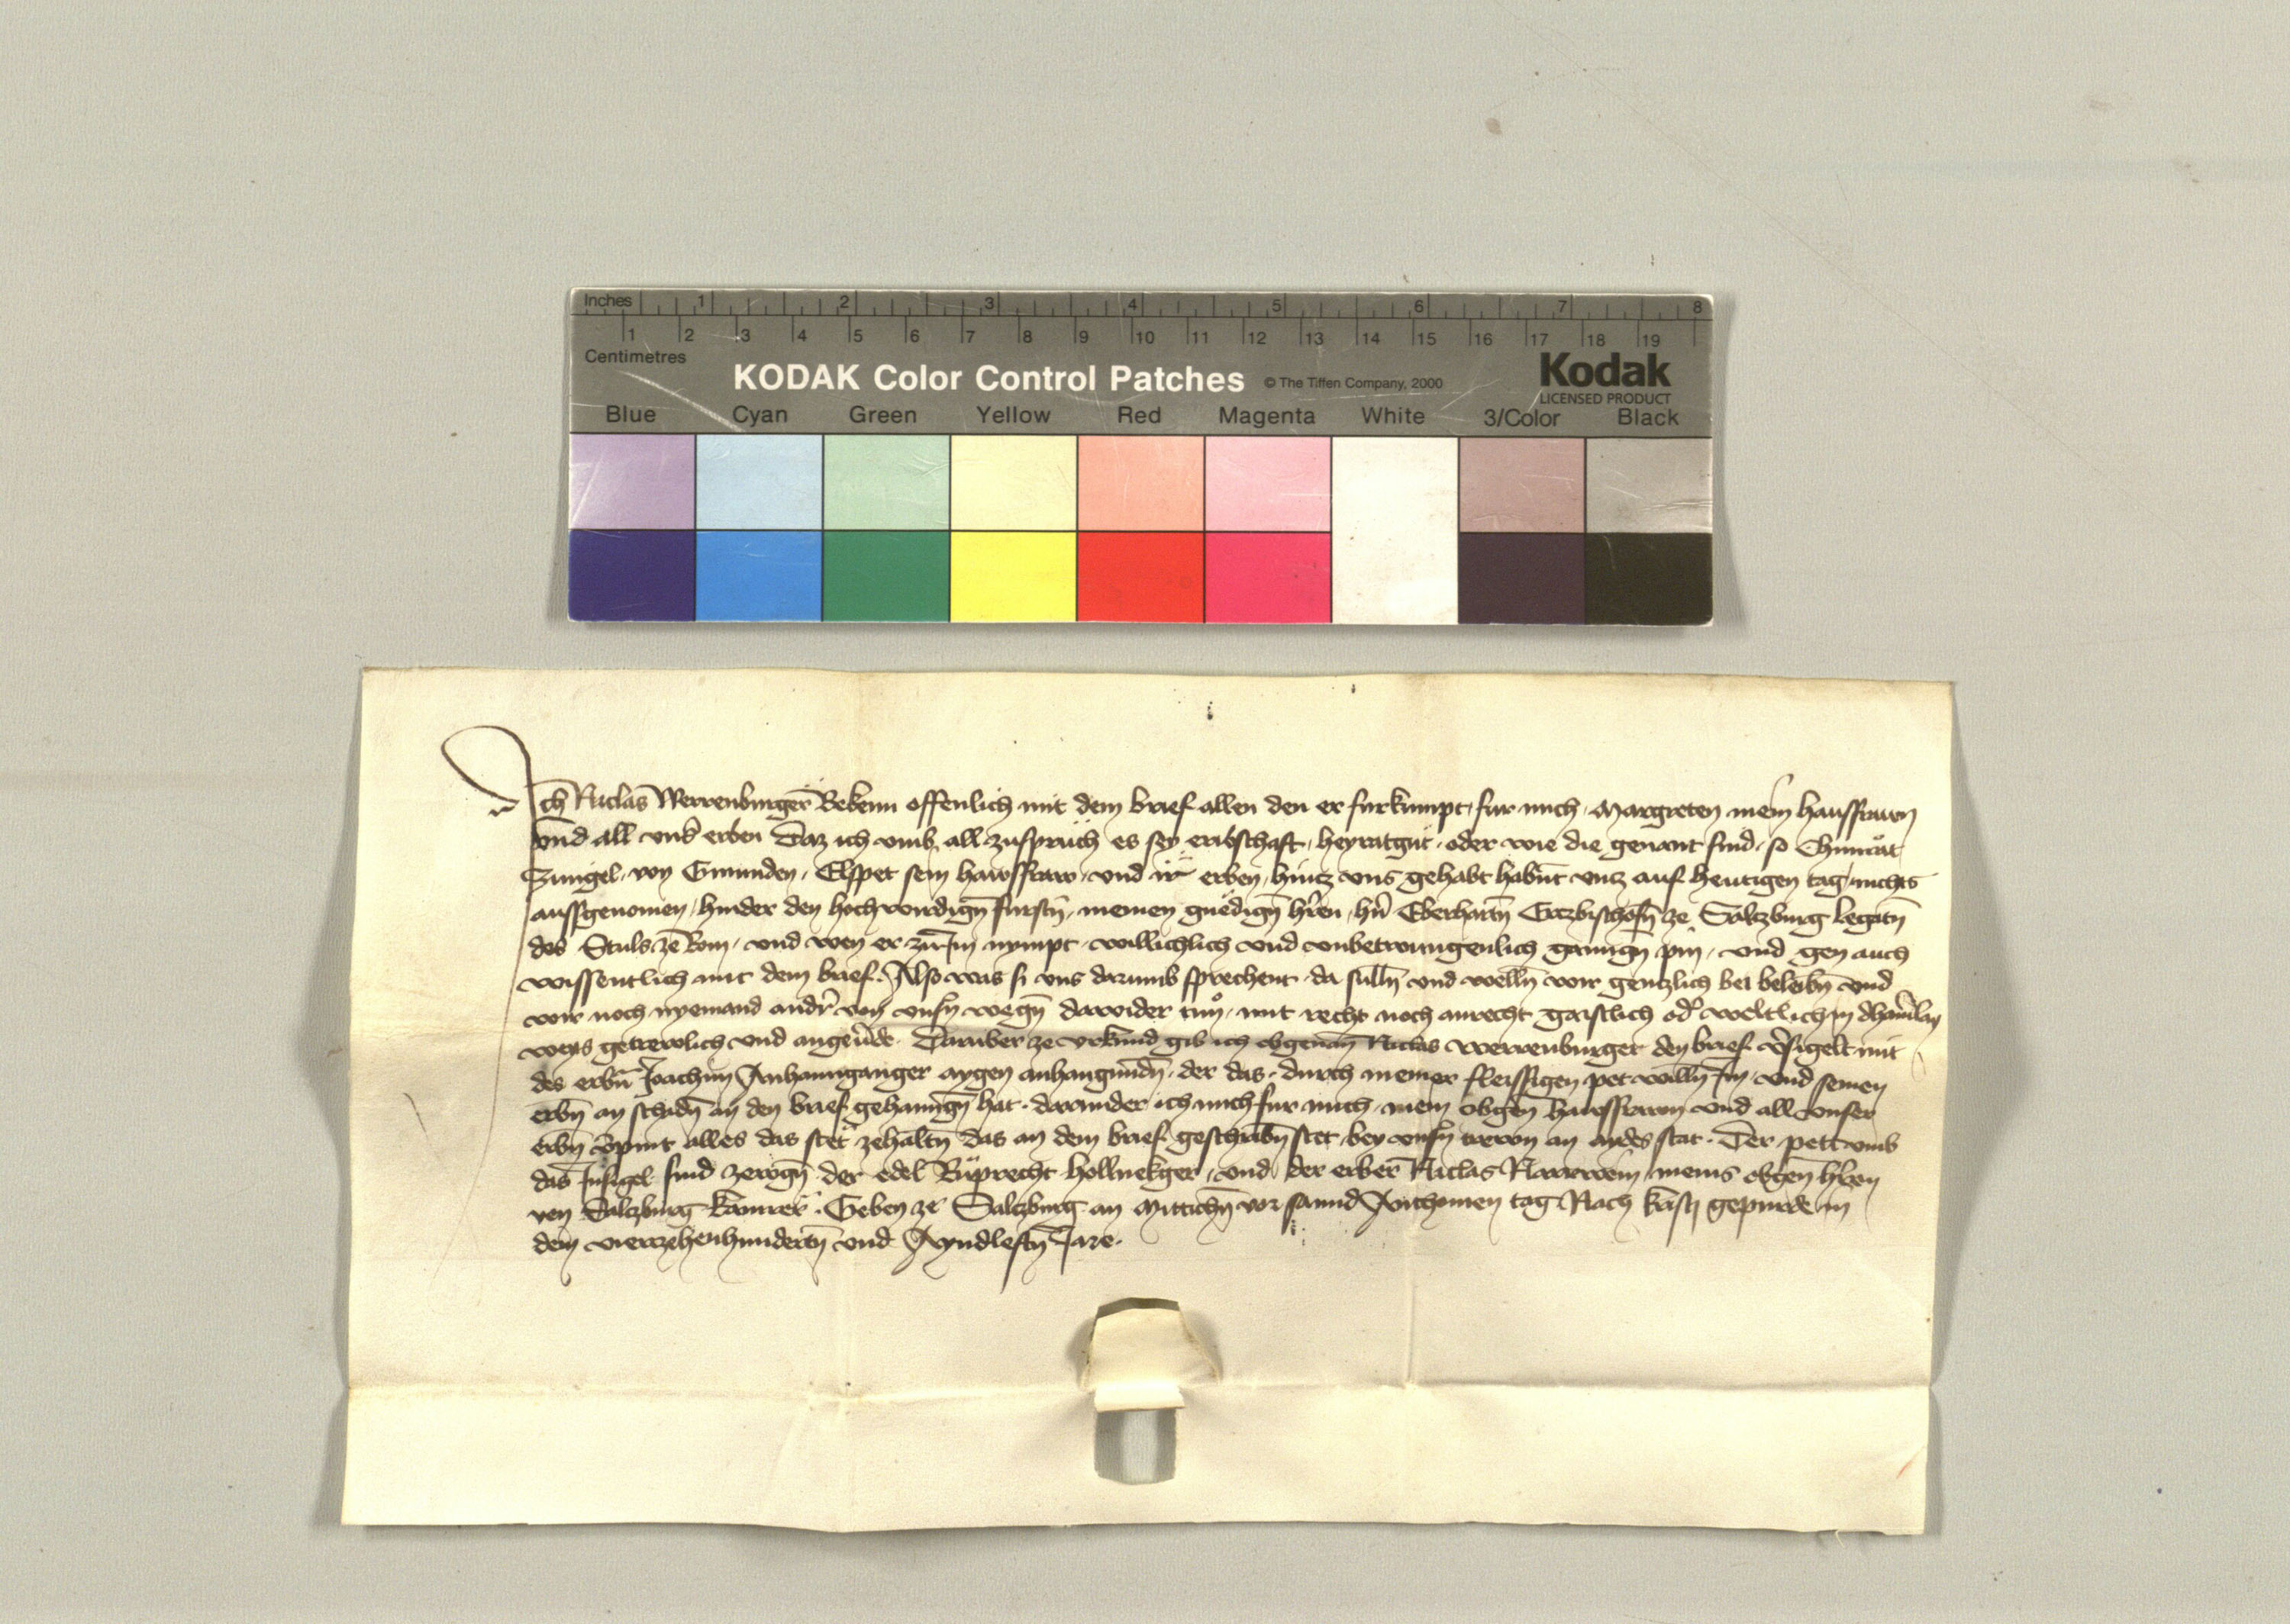 Inches 1 2 3 4 5 6 7 8
1 2 3 4 5 6 7 8 9 10 11 12 13 14 15 16 17 18 19
Centimetres
KODAK Color Control Patches © The Tiffen Company, 2000 Kodak
LICENSED PRODUCT
Blue Cyan Green Yellow Red Magenta White 3/Color Black
Ich Niclas Werrenburger Bekenn offenlich mit dem brief allen den er furkumpt, fur mich, Margreten mein hausfrawn
und all unser erben Daz ich umb all zuspruch es sey eribschaft, heyratgut, oder wie die genant sind, so Chunrat
Zungel von Gmunden, Elspet sein hawsfraw und ir erben, hintz uns gehabt habent untz auf heutigen tag nichts
aussgenomen, hinder den hochwirdign furstn, meinen gnedign hern, hern Eberhartn Ertzbischofn ze Saltzburg Legatn
des Stuls ze Rom, und wen er zu Im nympt, willichlich und unbetwungenlich gangn pin, und gen auch
wissentlich mit dem brief. Also was si uns darumb sprechent, da sulln und welln wir gentzlich bei beleibn und
wir noch nyemand andr von unsern wegn dawider tun, mit recht noch anrecht geistlich oder weltlich in dhainerlay
weys getrewlich und angeverde. Daruber ze urkund gib ich obgenan Niclas Werrenburger den brief versigelt mit
des erbern Joachim Anhannganger aygen anhangundn, der das, durch meiner fleissigen pet willn Im, und seinen
erbn an schadn an den brief gehanngn hat, darunder ich mich fur mich, mein obgen hawsfrawn und all unser
erbn verpint alles das stet zehaltn das an dem brief geschribn stet, bey unsern trewn an aydes stat. Der pett umb
das Insigel sind zewgn der edel Ruprecht hollnekger, und der erber Niclas meins obgen hern
von Saltzburg kamrer. Geben ze Saltzburg an Mittichn vor sannd Anthonien tag Nach krists gepurde in
dem vierzehenhundertn und Ayndleftn Jare.